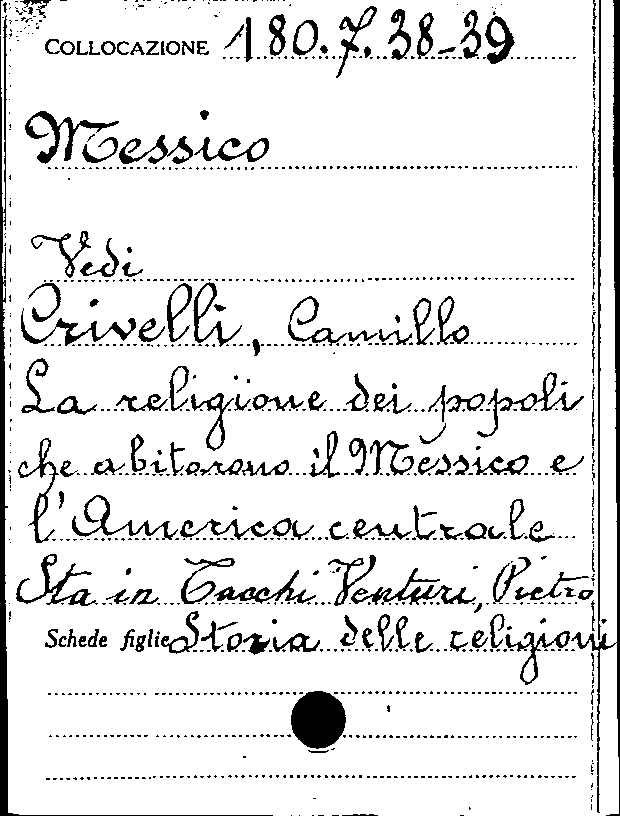 COLLOCAZIONE 180.7.38-39
Messico
Vedi
Crivelli, Camillo
La religione dei popoli
che abitarono il Messico e
l'America centrale
Sta in Tacchi Venturi, Pietro
Schede figlie Storia delle religioni